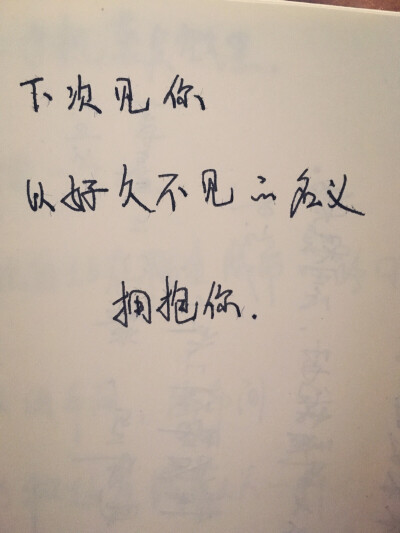 下次见你
以好久不见的名义
拥抱你.